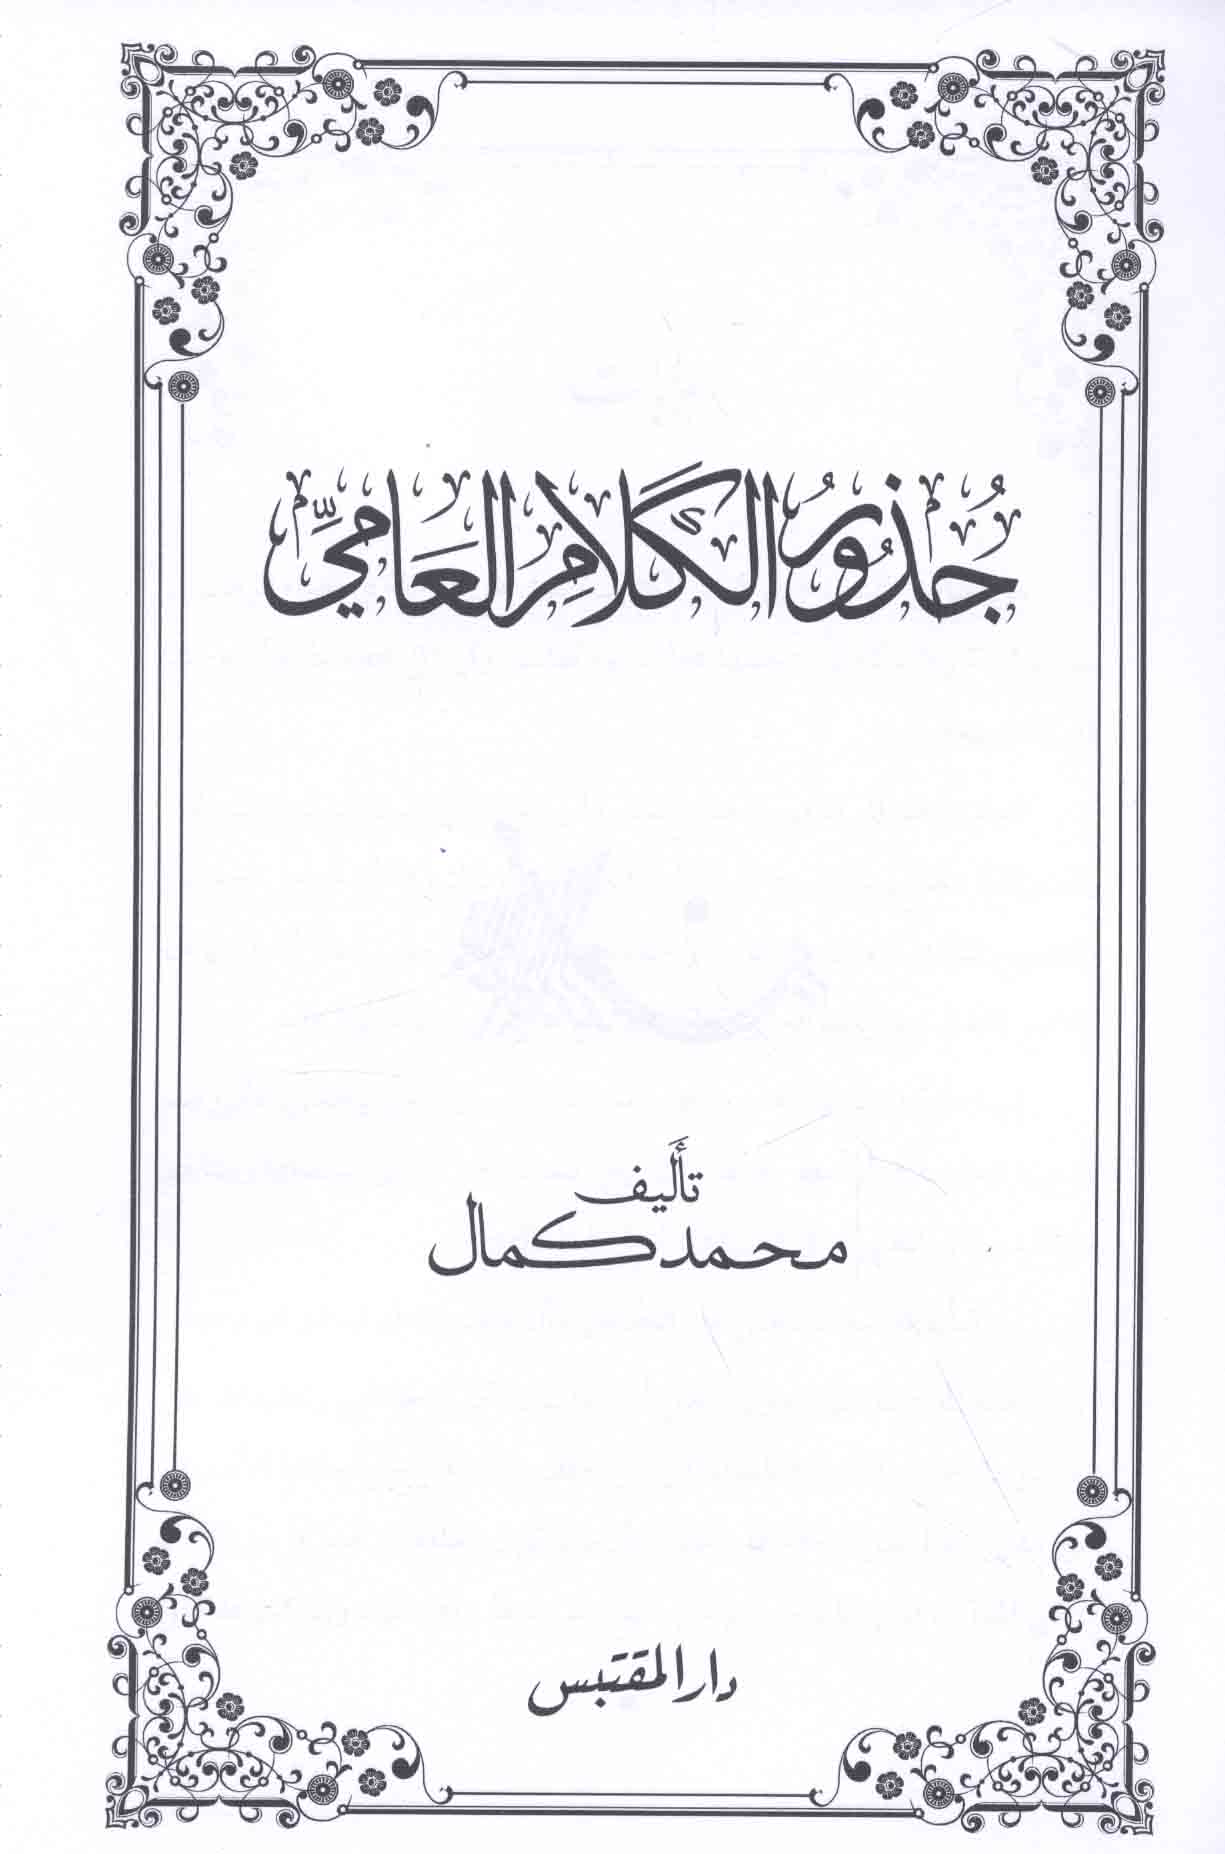 جُذُورُ الكَلَامِ العَامِّيِّ
تأَليف
محمد كمال
دار المقتبس